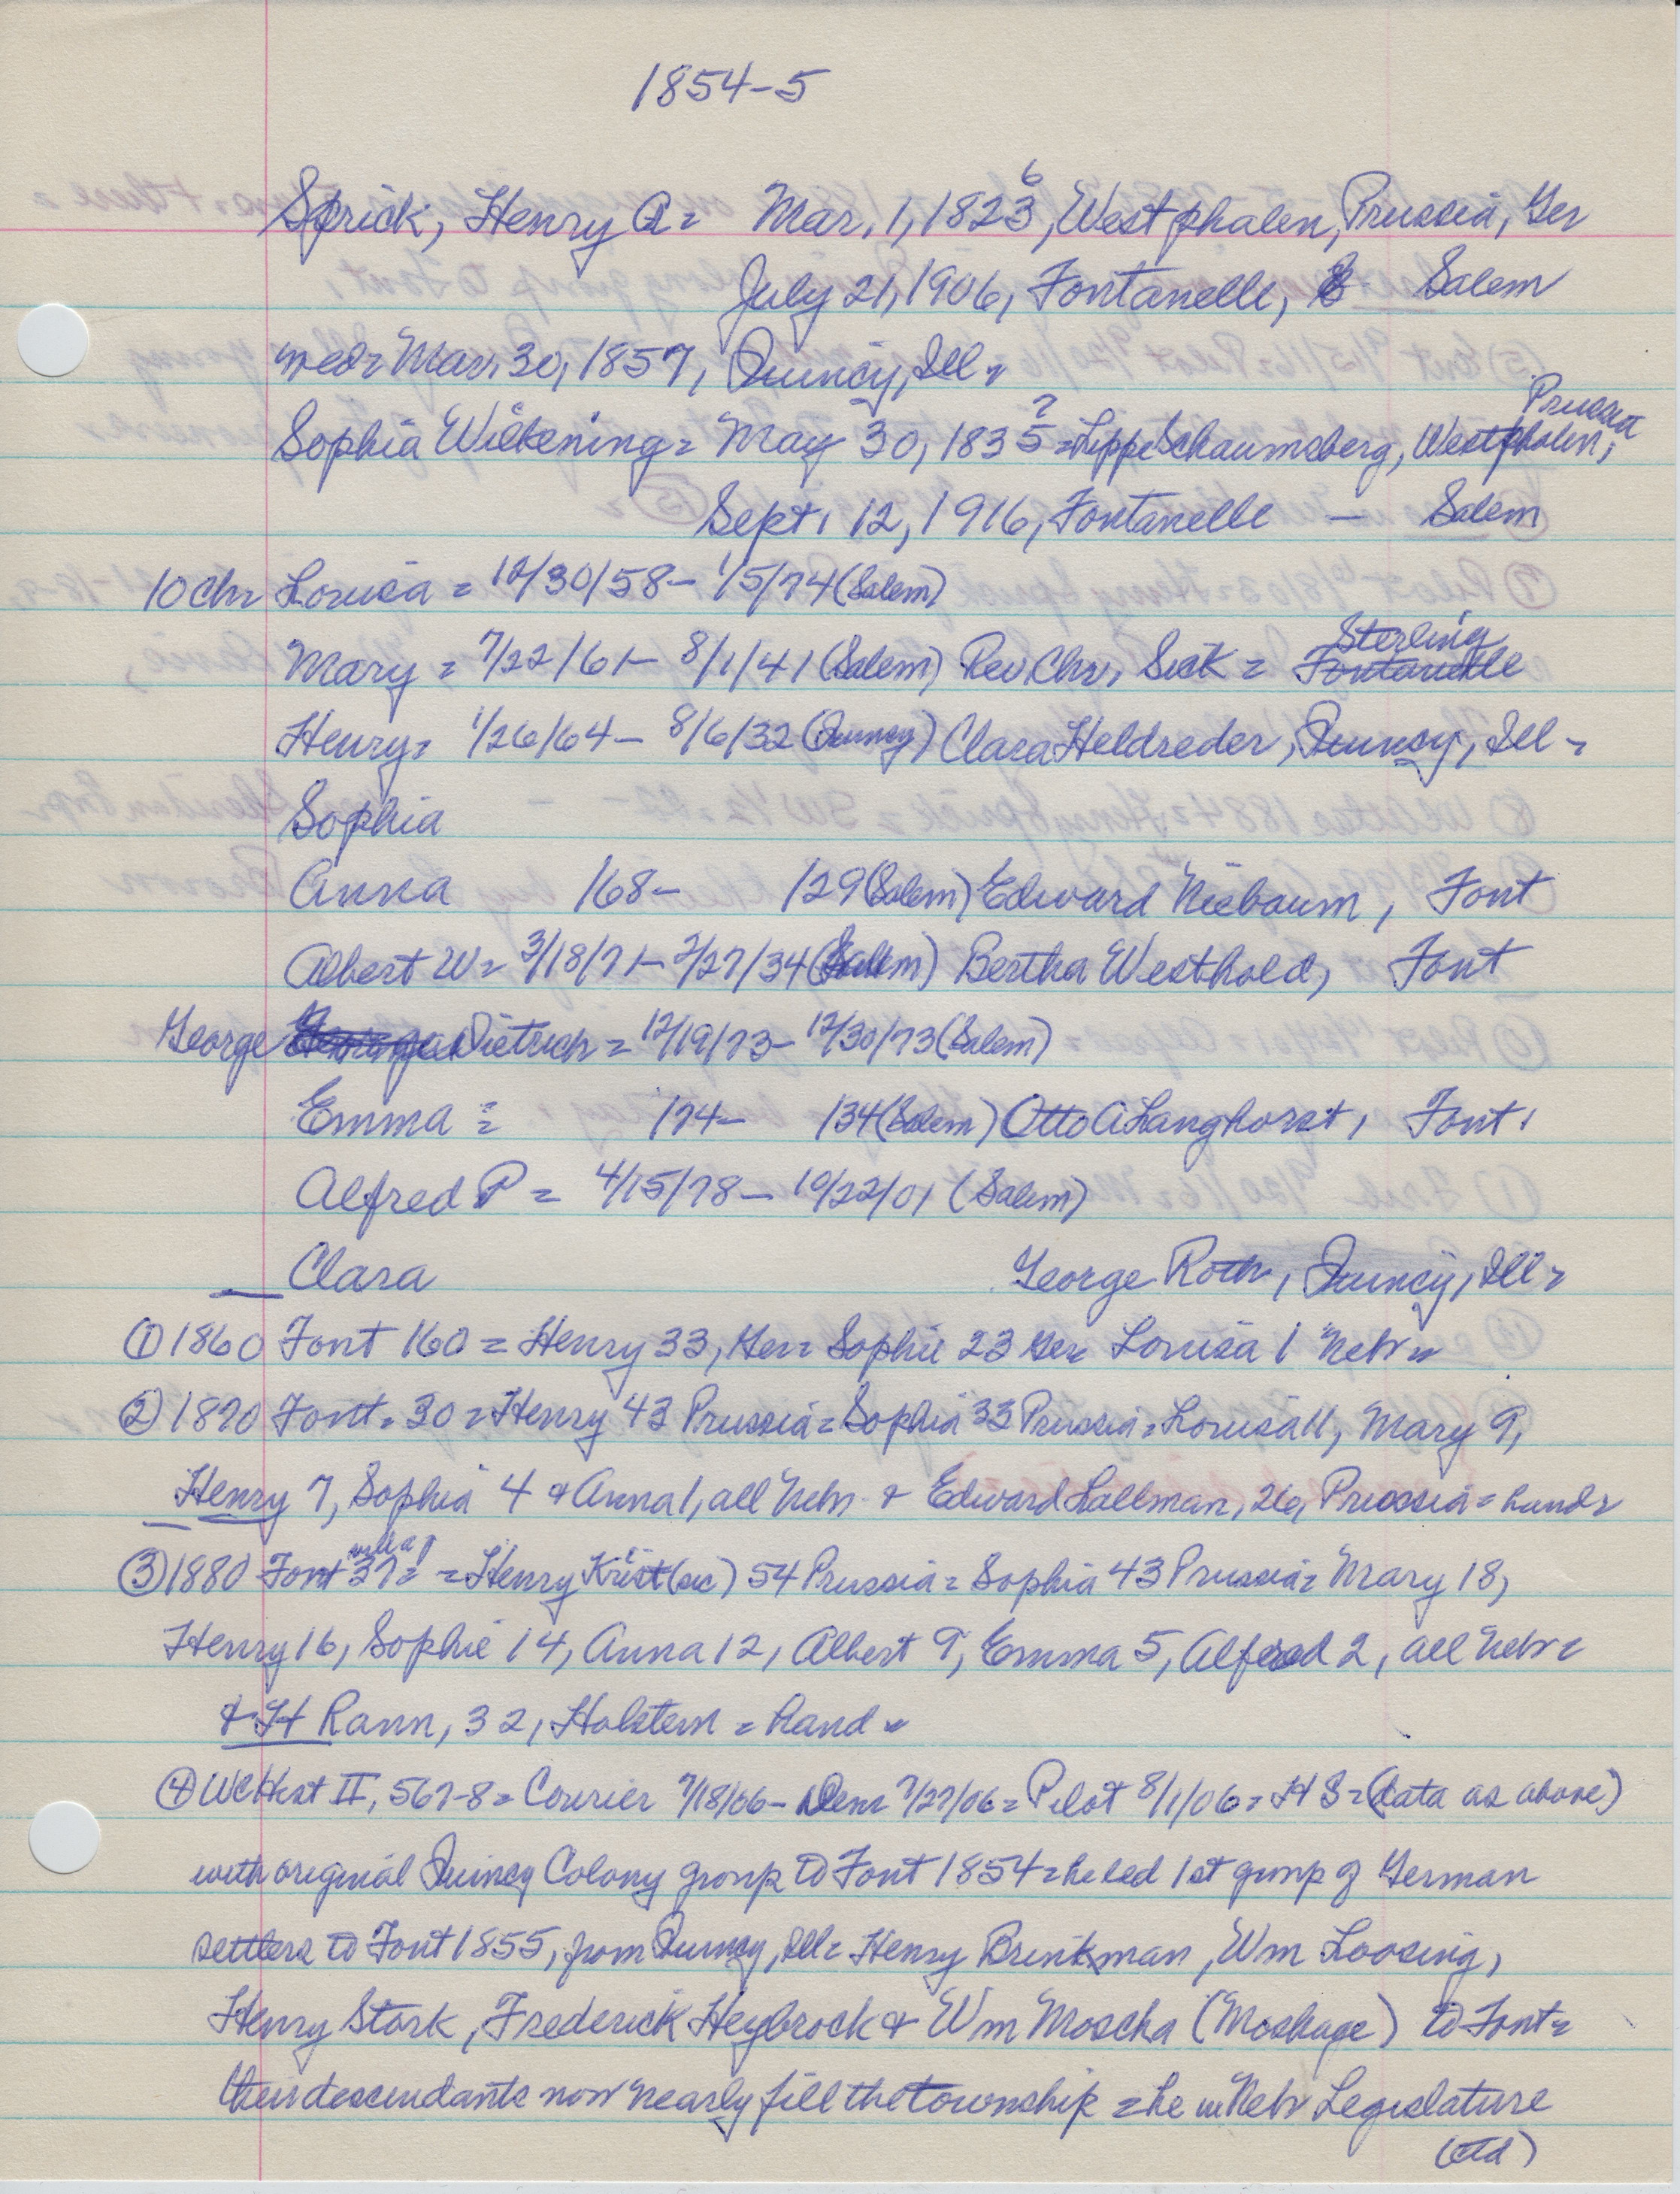 1854-5
6
Sprick, Henry A = Mar. 1, 1823, Westphalen, Prussia, Ger
July 21, 1906, Fontanelle, Salem
med = Mar. 30, 1857, Quincy, Ill =
? Prussia
Sophia Wilkening = May 30, 1835 = Lippe Schaumsberg, Westphalen,
Sept. 12, 1916, Fontanelle — Salem
10 chr Louisa = 12/30/58 - 1/5/74 (Salem)
Sterling
Mary = 7/22/61 - 8/1/41 (Salem) Rev Chr. Sick = Fontanelle
Henry = 1/26/64 - 8/6/32 (Quincy) Clara Heldreder, Quincy, Ill =
Sophia
Anna /68 - /29 (Salem) Edward Niebaum, Font
Albert W = 3/18/71 - 2/27/34 (Salem) Bertha Westhold, Font
George Dietrich = 12/19/73 - 12/30/73 (Salem)
Emma = /74 - /34 (Salem) Otto A Langhorst, Font.
Alfred P = 4/15/78 - 10/22/01 (Salem)
Clara George Roth, Quincy, Ill =
① 1860 Font 160 = Henry 33, Ger = Sophie 23 Ger = Louisa 1 Nebr =
② 1870 Font = 30 = Henry 43 Prussia = Sophia 33 Prussia = Louisa 11, Mary 9,
Henry 7, Sophia 4 & Anna 1, all Nebr & Edward Lallman, 26, Prussia = hand =
③ 1880 Font 37 = = Henry Krist (sic) 54 Prussia = Sophia 43 Prussia = Mary 18,
Henry 16, Sophie 14, Anna 12, Albert 9, Emma 5, Alfred 2, all Nebr =
& H Rann, 32, Holstein = hand =
④ WCHist II, 567-8 = Courier 7/18/06 - Dem 7/27/06 = Pilot 8/1/06 = H S = (data as above)
with original Quincy Colony group to Font 1854 = he led 1st group of German
settlers to Font 1855, from Quincy, Ill = Henry Brinkman, Wm Loosing,
Henry Stork, Frederick Heybrock & Wm Moscha (Moshage) to Font =
their descendants now nearly fill the township = he in Nebr Legislature
(ctd)